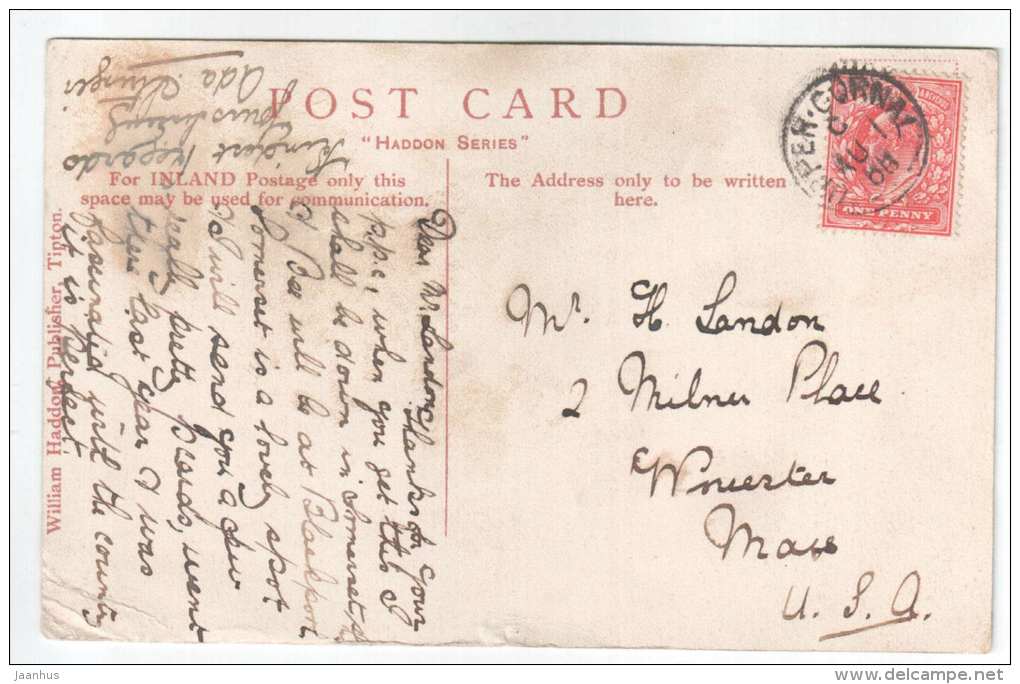 POST CARD
"HADDON SERIES"
For INLAND Postage only this
space may be used for communication.
The Address only to be written
here.
William Haddon, Publisher, Tipton.
UPPER-GORNAL
C
AU 1
08
ONE PENNY
Dear Mr Landon, Thanks for your
p.p.c., when you get this I
shall be down in Somerset,
& Bee will be at Blackpool.
Somerset is a lovely spot
& I will send you a few
really pretty boards, went
there last year & was
until the county
it is perfect.
Kindest Regards
Yours
Ada
Mr. H. Landon
2 Milner Place
Worcester
Mass
U. S. A.
Jaanhus
www.delcampe.net